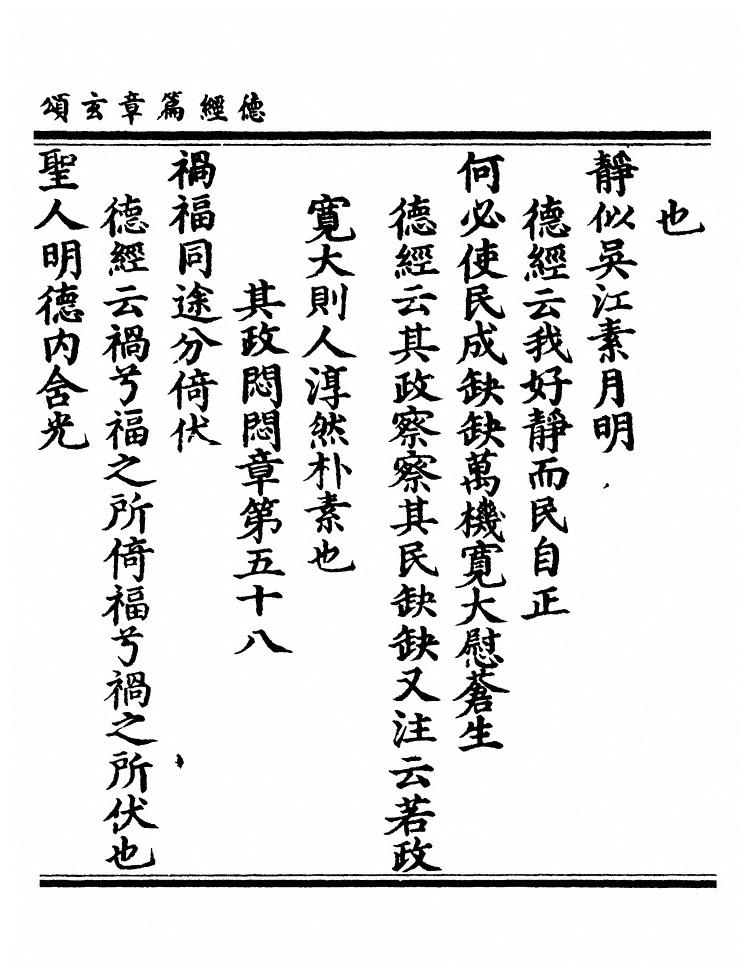 德經篇章玄頌
也
靜似吳江素月明
德經云我好靜而民自正
何必使民成缺缺萬機寬大慰蒼生
德經云其政察察其民缺缺又注云若政
寬大則人淳然朴素也
其政悶悶章第五十八
禍福同途分倚伏
德經云禍兮福之所倚福兮禍之所伏也
聖人明德内含光